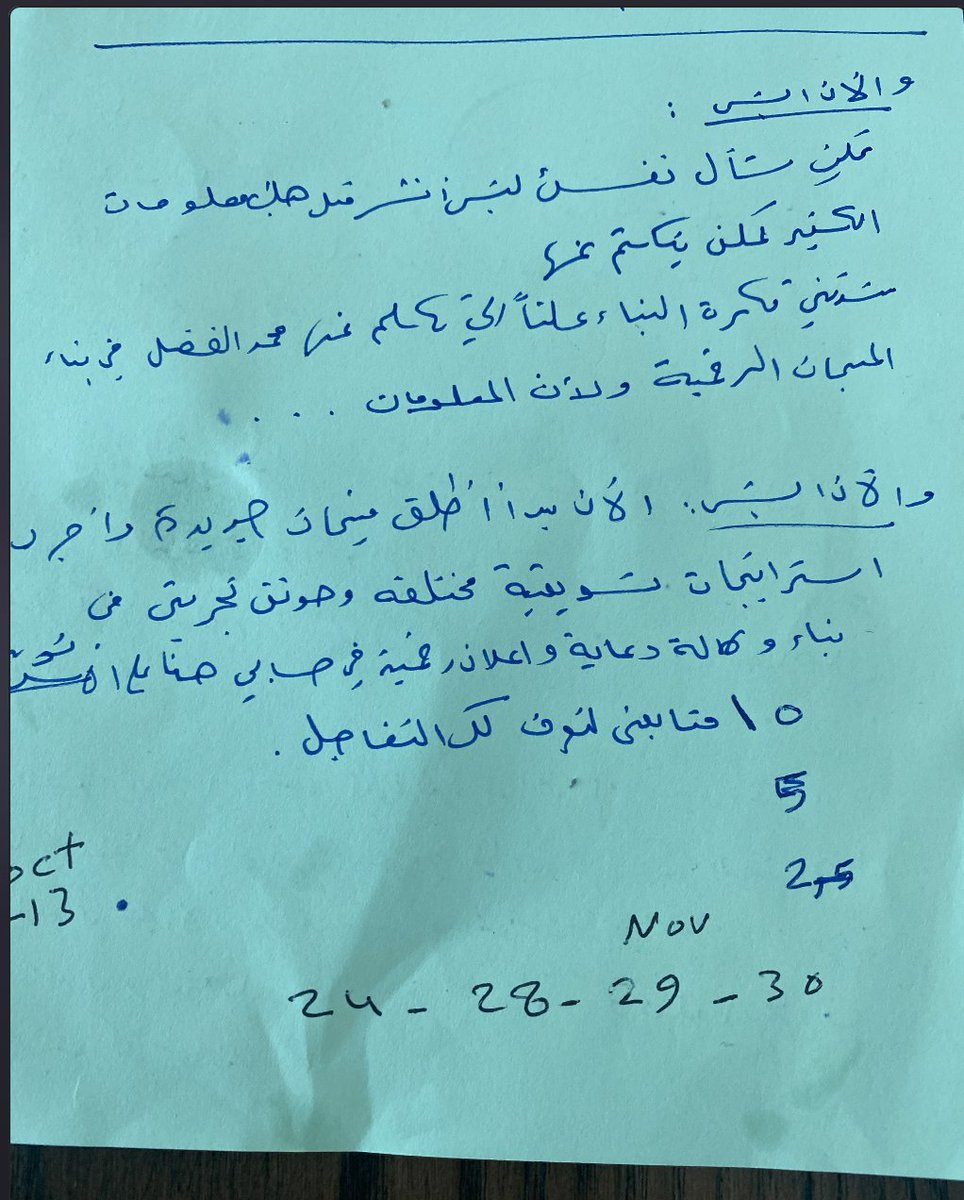 والآن السؤال :
ممكن ستسأل نفسك ليش أنشر مثل هيك معلومات
الكثير ممكن يتكتم عنها
شدتني فكرة البناء علناً التي تكلم عنها محمد الفضل في بناء
المنتجات الرقمية ولأن المعلومات ....
والآن السؤال. الآن بدأ أطلق منتجات جديدة وأجرب
استراتيجات تسويقية مختلفة وحوثق تجربتي في
بناء وكالة دعاية واعلان رقمية في حسابي هنا على
تابعني لتعرف كل التفاصيل.
5
2,5
oct
-13
Nov
24 - 28 - 29 - 30